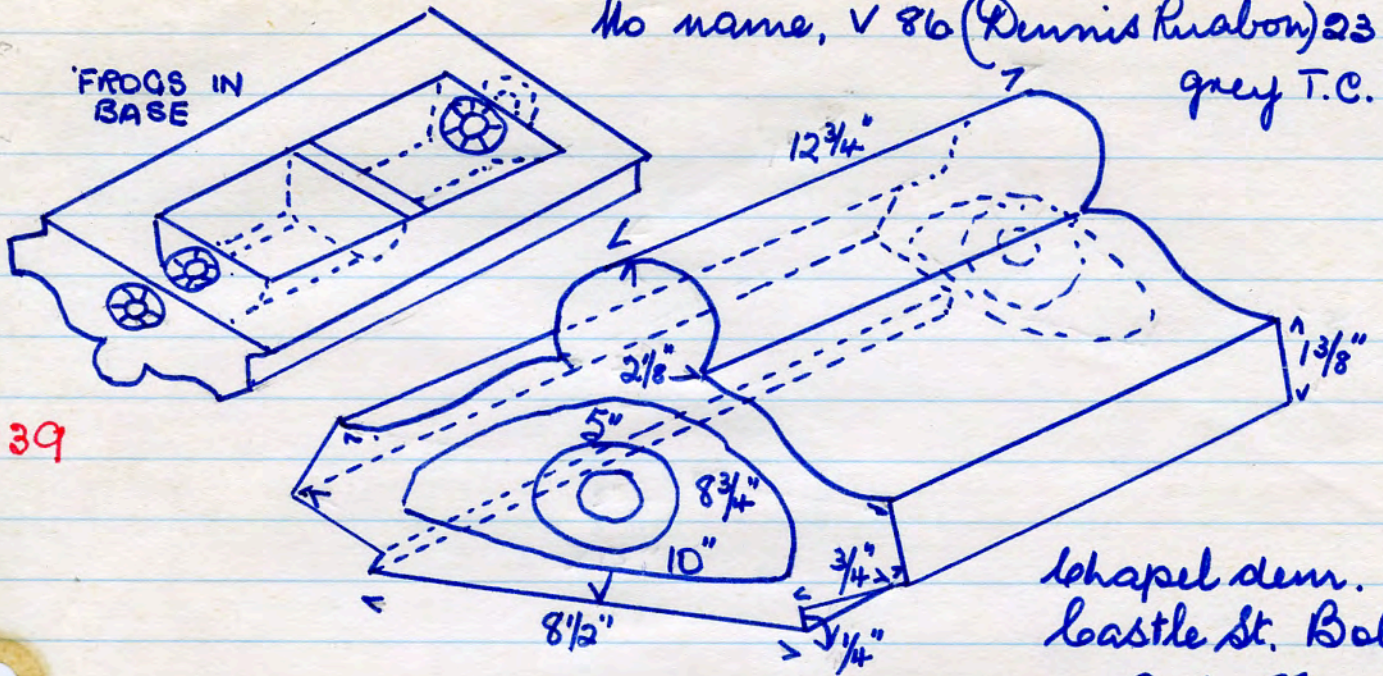 No name, V 86 (Dennis Ruabon) 23
grey T.C.
'FROGS IN
BASE
12 3/4"
2 1/8"
1 3/8"
39
5"
8 3/4"
10"
3/4"
8 1/2"
1/4"
Chapel dem.
Castle St. Bol